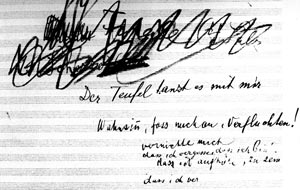 Der Teufel tanzt es mit mir
Wahnsinn, fass mich an, Verfluchten!
vernichte mich
dass ich vergesse, dass ich bin!
dass ich aufhöre, zu sein
dass ich ver